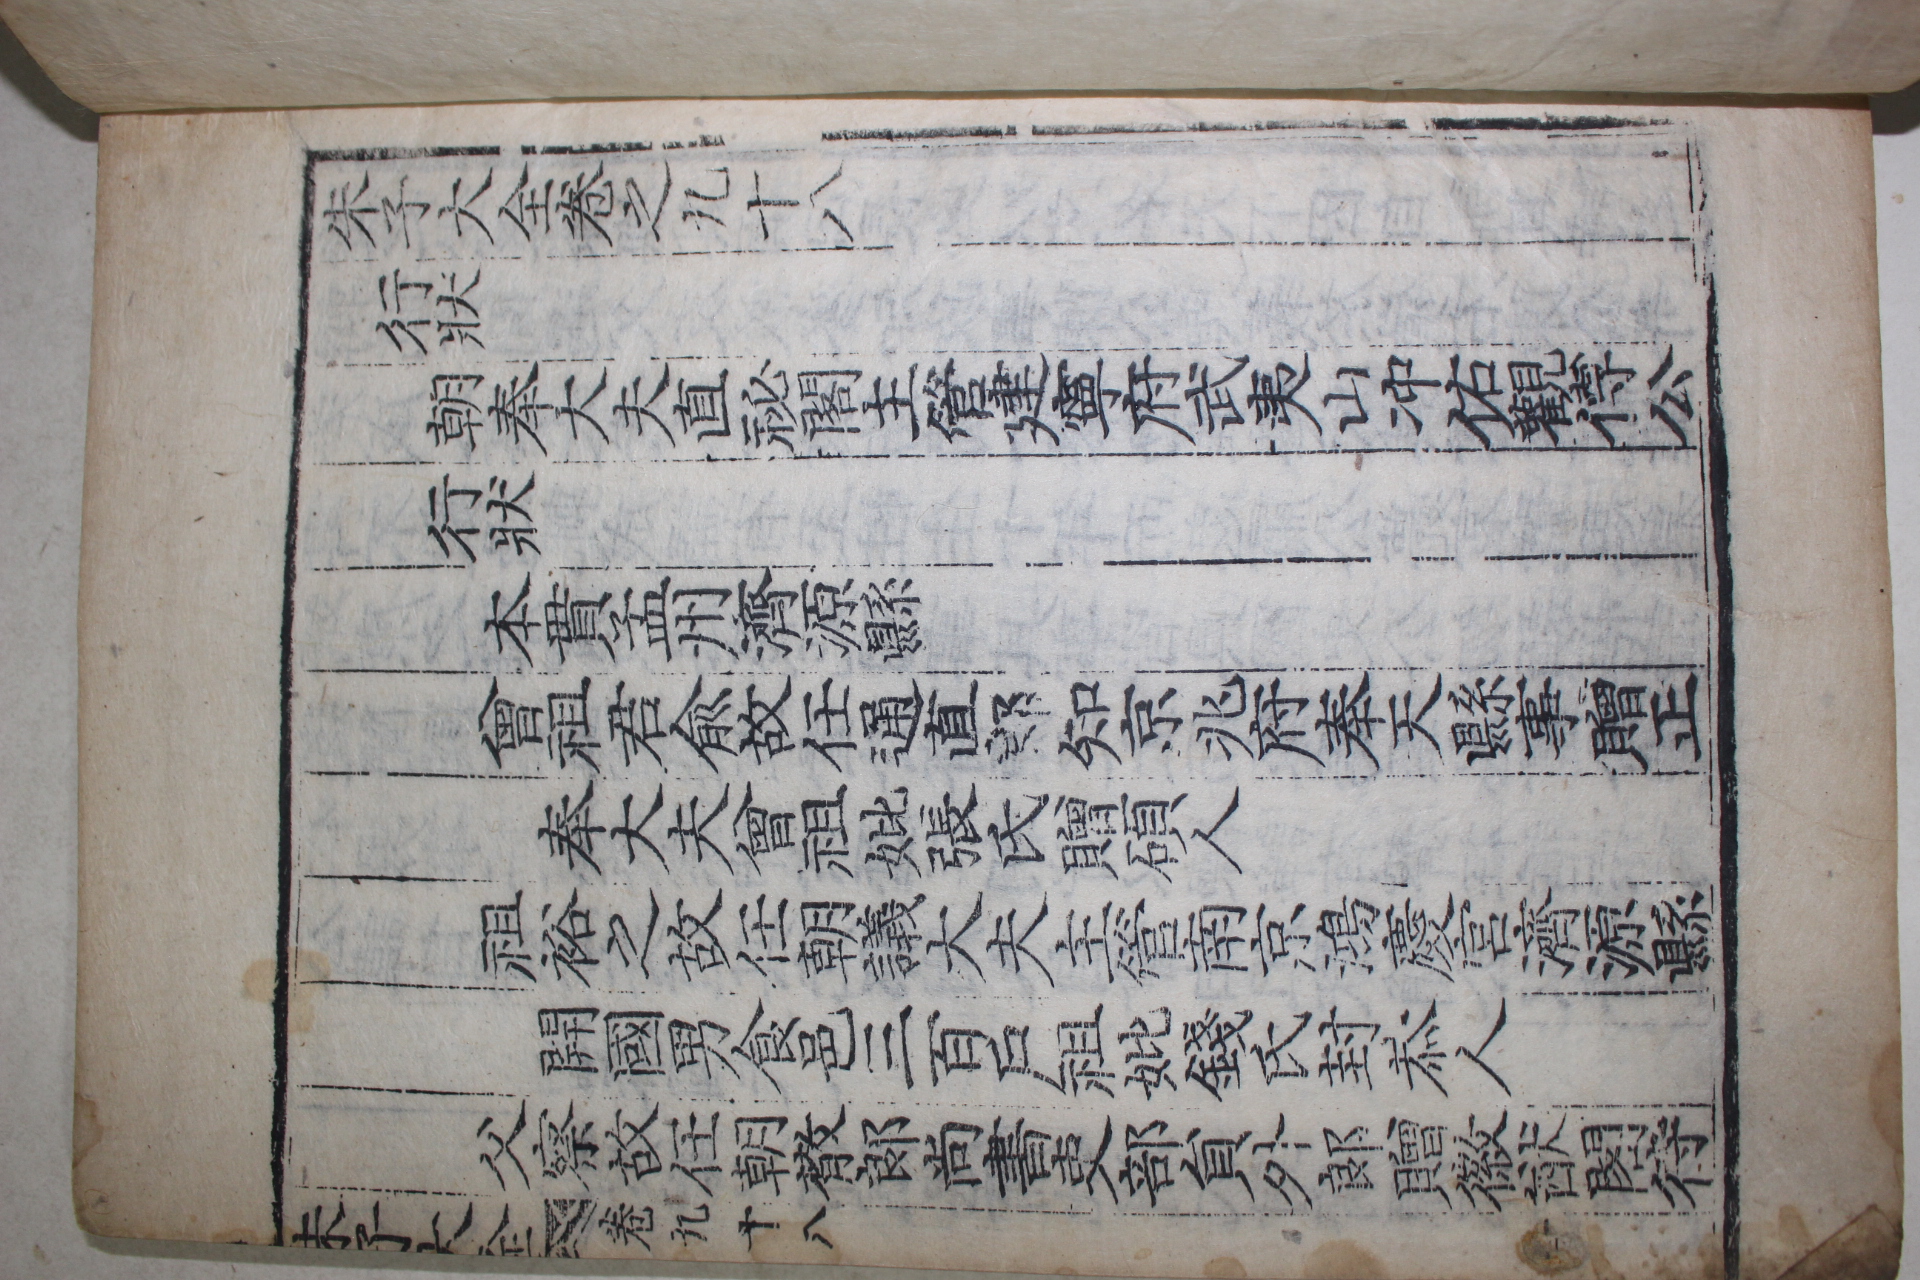 朱子大全卷之九十八
行狀
朝奉大夫直祕閣主管建寧府武夷山冲佑觀傅公
行狀
本貫孟州濟源縣
曾祖君兪故任通直郎知京兆府奉天縣事贈正
奉大夫曾祖妣張氏贈碩人
祖裕之故任朝議大夫主管南京鴻慶宮濟源縣
開國男食邑三百戶祖妣錢氏封恭人
父察故任朝散郎尚書吏部員外郎贈徽猷閣待
朱子大全 卷九十八